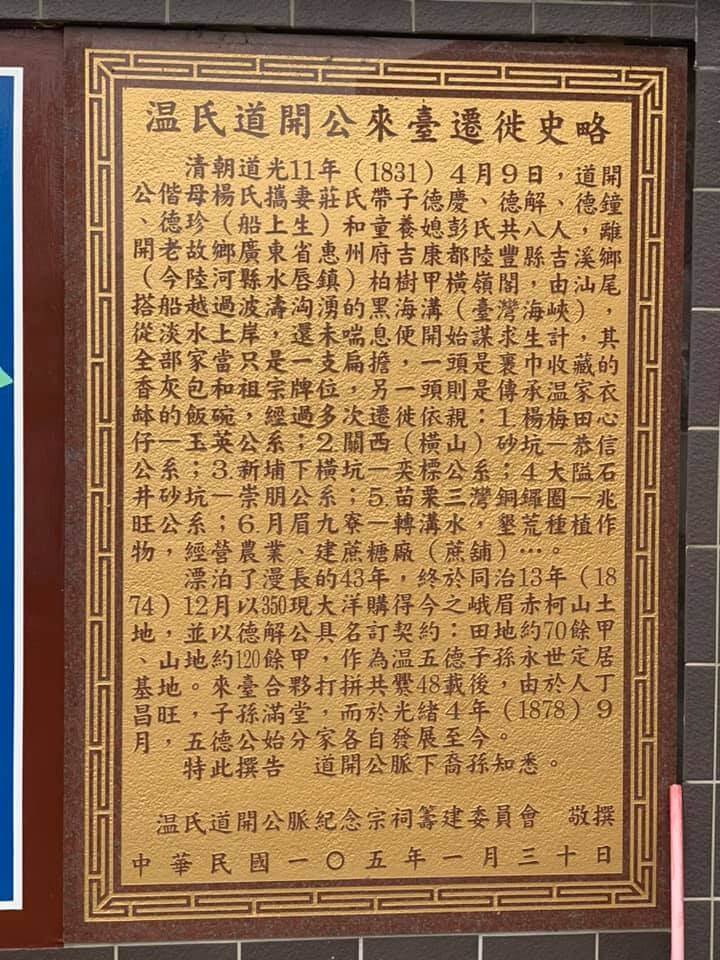 温氏道開公來臺遷徙史略
清朝道光11年（1831）4月9日，道開
公偕母楊氏攜妻莊氏帶子德慶、德解、德鐘
、德珍（船上生）和童養媳彭氏共八人，離
開老故鄉廣東省惠州府吉康都陸豐縣吉溪鄉
（今陸河縣水唇鎮）柏樹甲橫嶺閣，由汕尾
搭船越過波濤洶湧的黑海溝（臺灣海峽），
從淡水上岸，還未喘息便開始謀求生計，其
全部家當只是一支扁擔，一頭是裹巾收藏的
香灰包和祖宗牌位，另一頭則是傳承温家衣
缽的飯碗，經過多次遷徙依親：1.楊梅田心
仔—玉英公系；2.關西（橫山）砂坑—恭信
公系；3.新埔下橫坑—奕標公系；4.大隘石
井砂坑—崇朋公系；5.苗栗三灣銅鑼圈—兆
旺公系；6.月眉九寮—轉溝水，墾荒種植作
物，經營農業、建蔗糖廠（蔗舖）…。
漂泊了漫長的43年，終於同治13年（18
74）12月以350現大洋購得今之峨眉赤柯山土
地，並以德解公具名訂契約：田地約70餘甲
、山地約120餘甲，作為温五德子孫永世定居
基地。來臺合夥打拼共爨48載後，由於人丁
昌旺，子孫滿堂，而於光緒4年（1878）9
月，五德公始分家各自發展至今。
特此撰告　道開公脈下裔孫知悉。
温氏道開公脈紀念宗祠籌建委員會　敬撰
中華民國一〇五年一月三十日